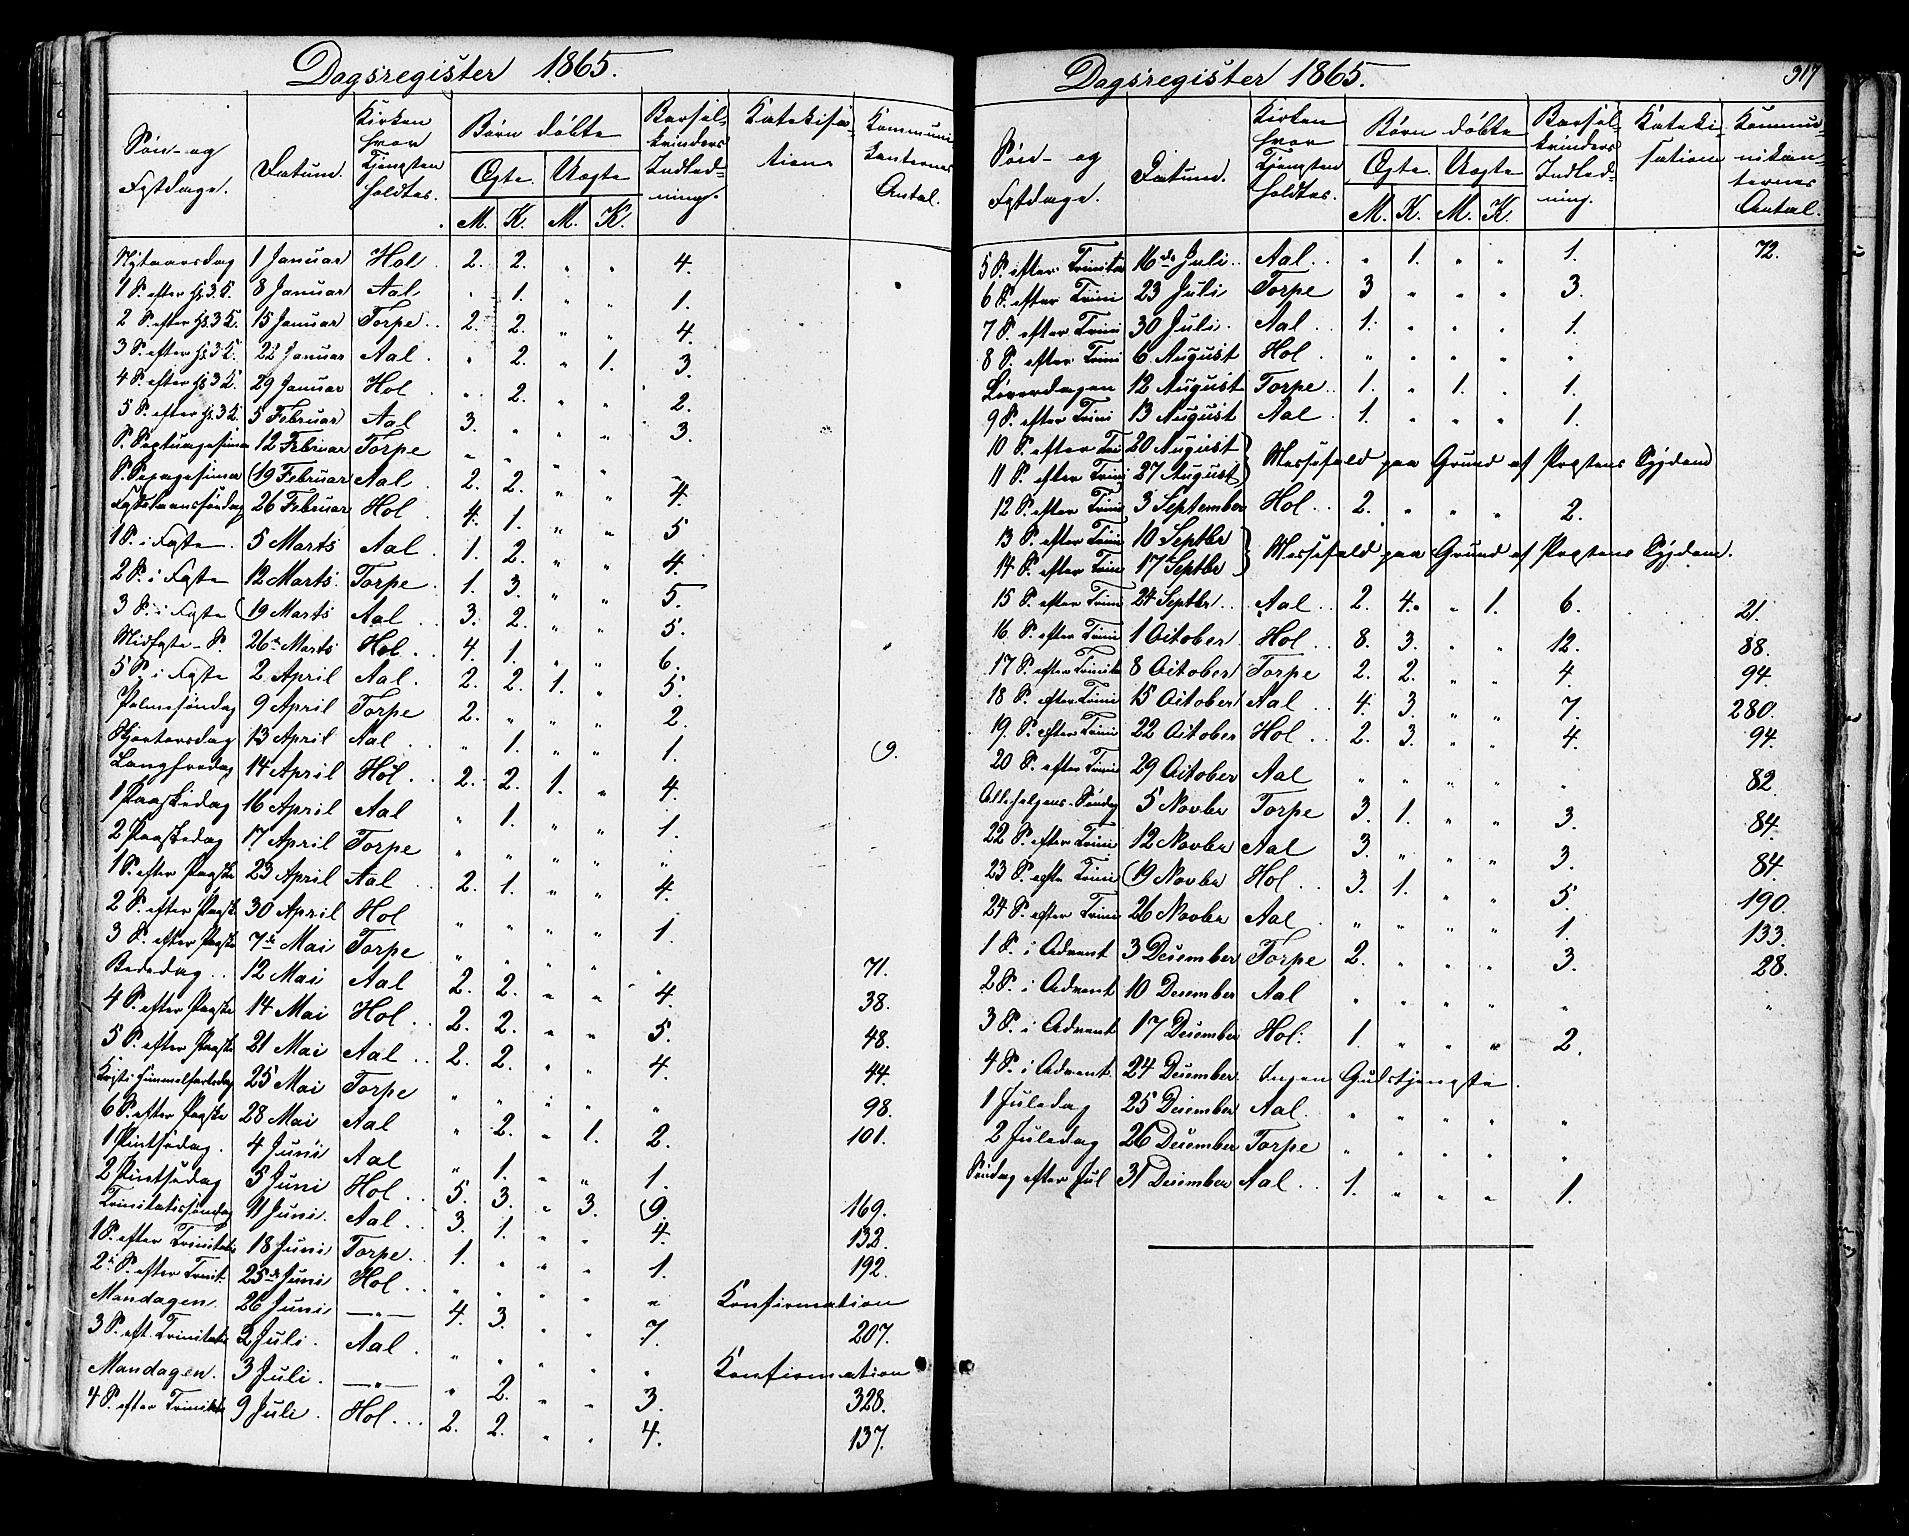 Dagsregister 1865.
Søn- og Festdage. Datum. Kirken hvor Tjenesten holdtes. Børn døbte Ægte. Uægte M. K. M. K. Barselkvinders Indledning. Katekisation Kommunikanternes Antal.
Nytaarsdag 1 Januar Hol 2. 2. " " 4.
1 S. efter H. 3 K. 8 Januar Aal " 1. " " 1.
2 S. efter H. 3 K. 15 Januar Torpe 2. 2. " " 4.
3 S. efter H. 3 K. 22 Januar Aal " 2. " 1. 3.
4 S. efter H. 3 K. 29 Januar Hol " 2. " " 2.
5 S. efter H. 3 K. 5 Februar Aal 3. " " " 3.
S. Septuagesima 12 Februar Torpe " " " " "
S. Sexagesima 19 Februar Aal 2. 2. " " 4.
Fastelavnssøndag 26 Februar Hol 4. 1. " " 5
1 S. i Faste 5 Marts Aal 1. 2. " " 4.
2 S. i Faste 12 Marts Torpe 1. 3. " " 5.
3 S. i Faste 19 Marts Aal 3. 2. " " 5.
Midfaste-S. 26de Marts Hol 4. 1. " " 6.
5 S. i Faste 2 April Aal 2. 2. 1. " 5.
Palmesøndag 9 April Torpe 2. " " " 2.
Skjertorsdag 13 April Aal " 1. " " 1. 9.
Langfredag 14 April Hol 2. 2. 1. " 4.
1 Paaskedag 16 April Aal " 1. " " 1.
2 Paaskedag 17 April Torpe " " " " "
1 S. efter Paaske 23 April Aal 2. 1. " " 4.
2 S. efter Paaske 30 April Hol " " " " 1.
3 S. efter Paaske 7de Mai Torpe " " " " " 71.
Bededag 12 Mai Aal 2. 2. " " 4. 38.
4 S. efter Paaske 14 Mai Hol 2. 2. " " 5. 48.
5 S. efter Paaske 21 Mai Aal 2. 2. " " 4. 44.
Kristi Himmelfartsdag 25 Mai Torpe " " " " " 98.
6 S. efter Paaske 28 Mai Aal " 2. " 1. 2. 101.
1 Pintsedag 4 Juni Aal " 1. " " 1.
2 Pintsedag 5 Juni Hol 5. 3. " 3. 9. 169.
Trinitatissøndag 11 Juni Aal 3. 1. " " 4. 132.
1 S. efter Trinitatis 18 Juni Torpe 1. " " " 1. 192.
2 S. efter Trinit. 25de Juni Hol " " " " " Konfirmation
Mandagen 26 Juni —"— 4. 3. " " 7. 207.
3 S. eft. Trinitatis 2 Juli Aal " " " " " Konfirmation
Mandagen 3 Juli —"— " 2. " " 3. 328.
4 S. efter Trinitat 9 Juli Hol 2. 2. " " 4. 137.
Dagsregister 1865. 317
Søn- og Festdage. Datum. Kirken hvor Tjenesten holdtes. Børn døbte Ægte. Uægte M. K. M. K. Barselkvinders Indledning. Katekisation Kommunikanternes Antal.
5 S. efter Trinita 16de Juli Aal " 1. " " 1. 72.
6 S. efter Trini 23 Juli Torpe 3 " " " 3.
7 S. efter Trini 30 Juli Aal 1. " " " 1.
8 S. efter Trini 6 August Hol " " " " "
Løverdagen 12 August Torpe 1. " 1. " 1.
9 S. efter Trini 13 August Aal 1. " " " 1.
10 S. efter Tri 20 August
11 S. efter Trini 27 August Messefald paa Grund af Præstens Sygdom
12 S. efter Trini 3 September Hol 2. " " " 2.
13 S. efter Trini 10 Septbr
14 S. efter Trini 17 Septbr Messefald paa Grund af Præstens Sygdom.
15 S. efter Trini 24 Septbr Aal 2. 4. " 1. 6. 21.
16 S. efter Trini 1 October Hol 8. 3. " " 12. 88.
17 S. efter Trinita 8 October Torpe 2. 2. " " 4 94.
18 S. efter Trini 15 October Aal 4. 3. " " 7. 280.
19 S. efter Trini 22 October Hol 2. 3. " " 4. 94.
20 S. efter Trini 29 October Aal " " " " " 82.
Allehelgens-Søndag 5 Novbr Torpe 3. 1. " " 3. 84.
22 S. efter Trini 12 Novbr Aal 3. " " " 3. 84.
23 S. efter Trini 19 Novbr Hol 3. 1. " " 5. 190.
24 S. efter Trini 26 Novbr Aal " " " " 1. 133.
1 S. i Advent 3 Desember Torpe 2. " " " 3. 28.
2 S. i Advent 10 Desember Aal " " " " " "
3 S. i Advent 17 Desember Hol. 1. " " " 2.
4 S. i Advent 24 Desember Ingen Gudstjeneste.
1 Juledag 25 Desember Aal. " " " " "
2 Juledag 26 Desember Torpe " " " " "
Søndag efter Jul 31 Desember Aal 1. " " " 1.